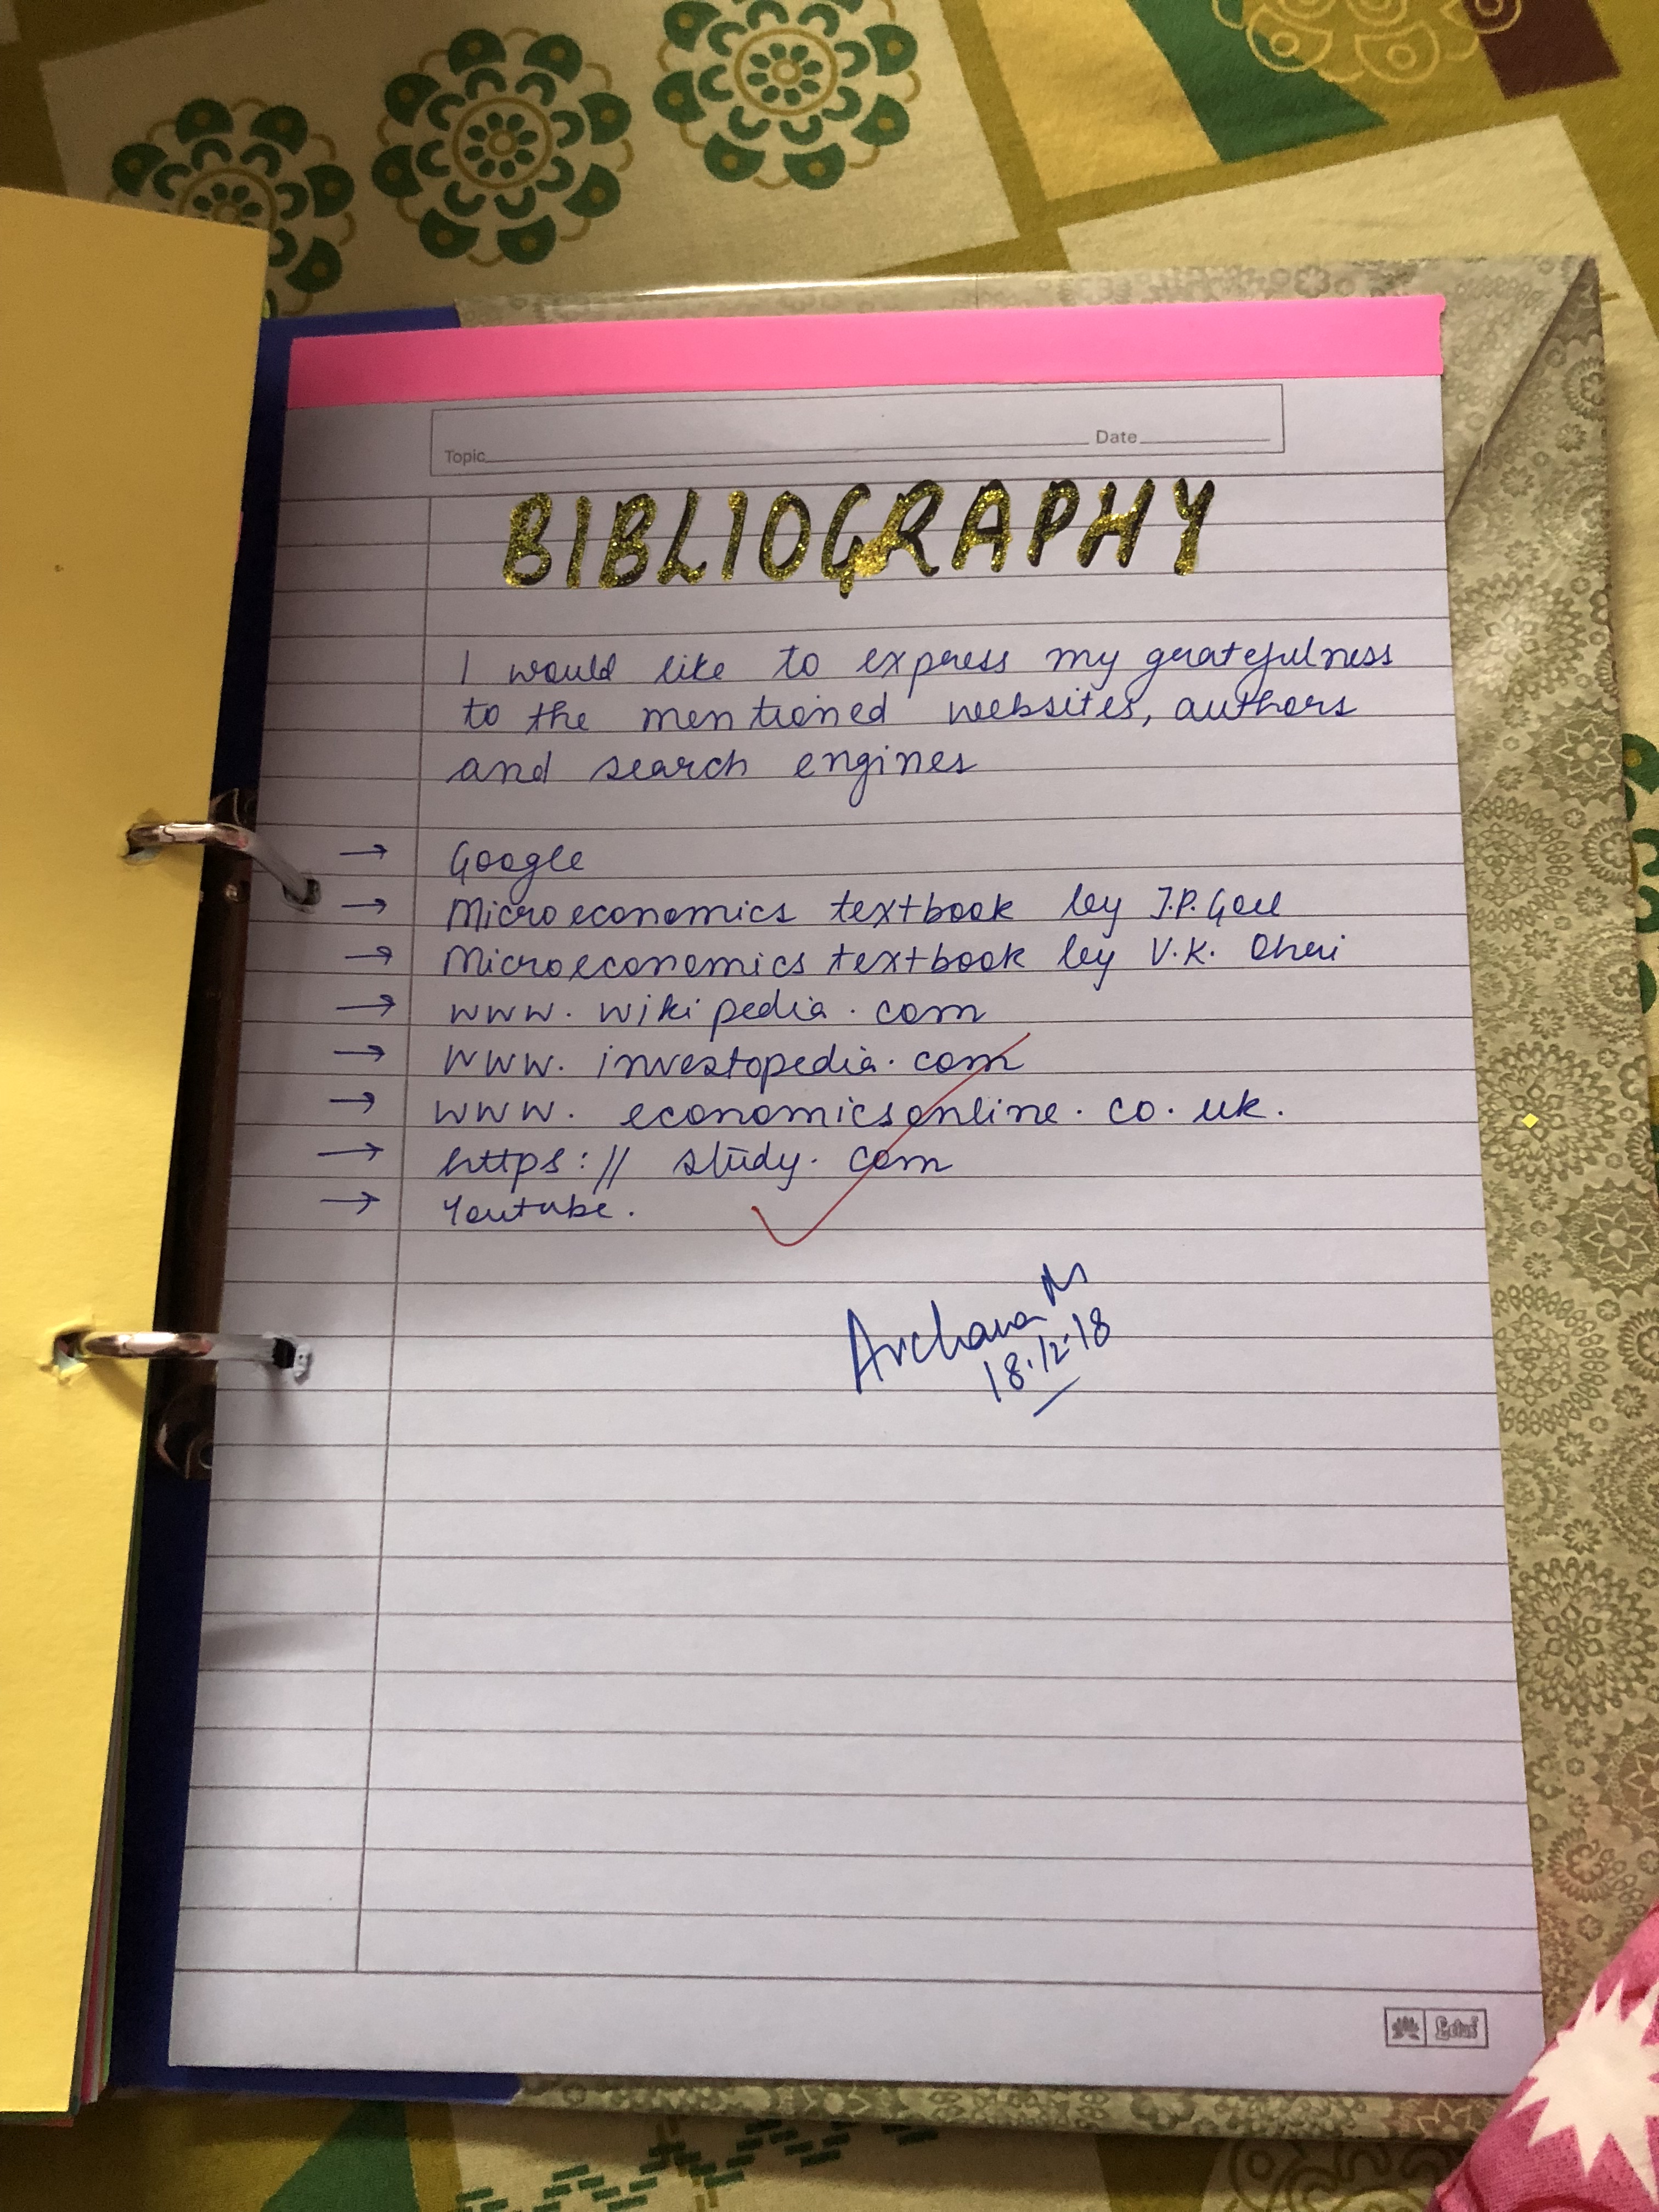 Topic Date
BIBLIOGRAPHY
I would like to express my gratefulness
to the mentioned websites, authors
and search engines
→ Google
→ Microeconomics textbook by T.P. Goel
→ Microeconomics textbook by V.K. Ohri
→ www.wikipedia.com
→ www.investopedia.com
→ www.economicsonline.co.uk.
→ https://study.com
→ Youtube.
Archana
18.12.18
Lotus